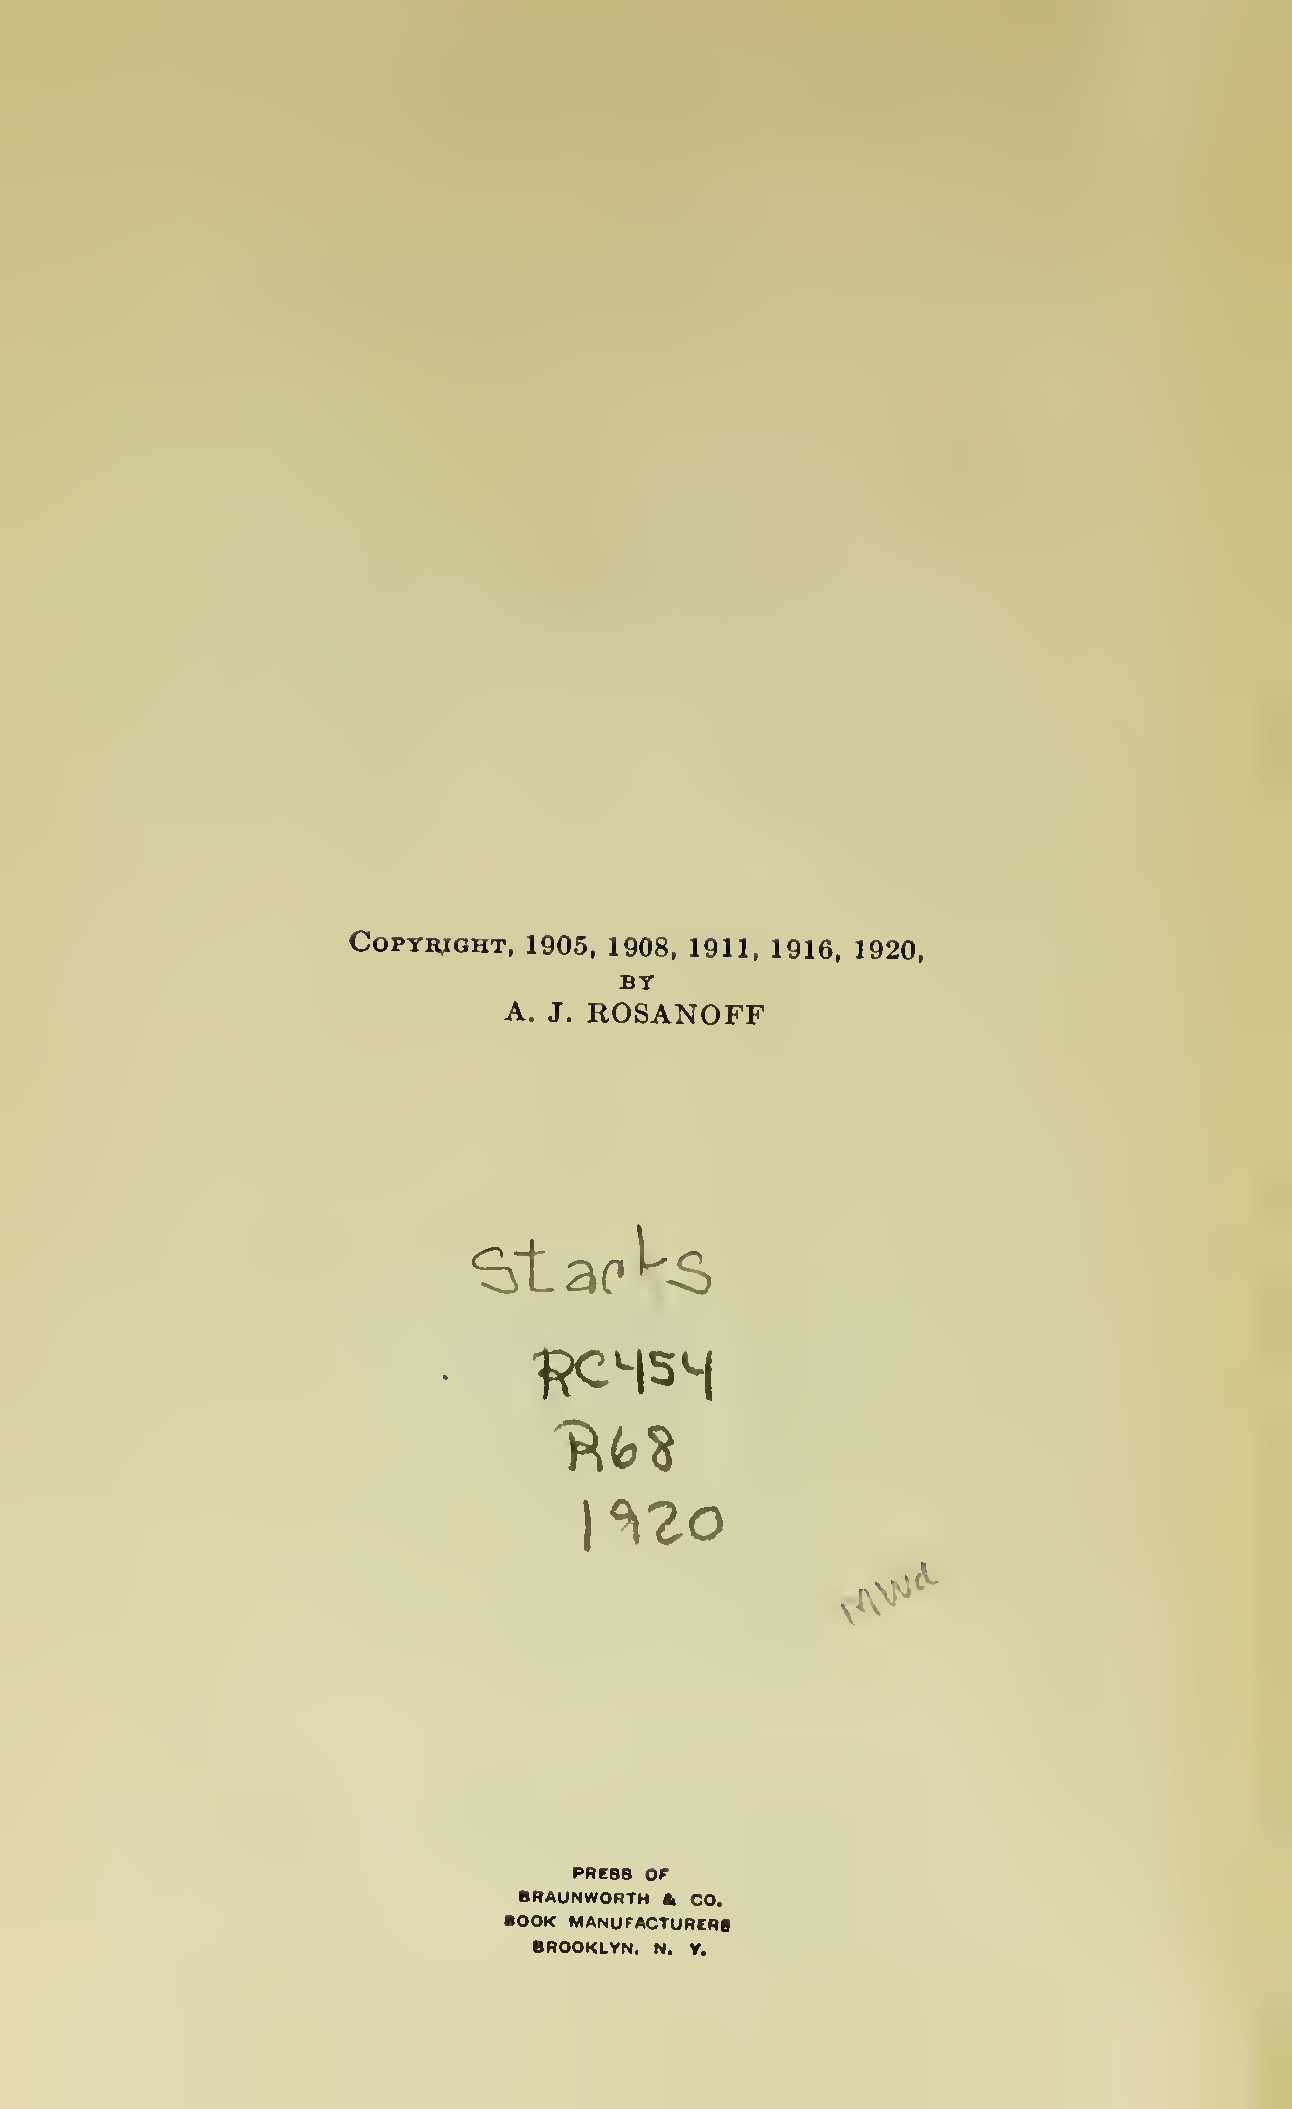 Copyright, 1905, 1908, 1911, 1916, 1920,
BY
A. J. ROSANOFF
Stacks
RC454
R68
1920
PRESS OF
BRAUNWORTH & CO.
BOOK MANUFACTURERS
BROOKLYN, N. Y.